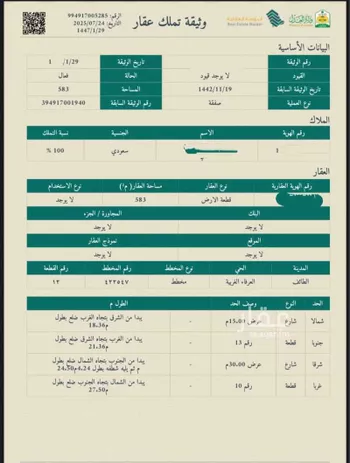 وثيقة تملك عقار
الرقم: 994917005285
التاريخ: 2025/07/24
1447/1/29
البيانات الأساسية
رقم الوثيقة تاريخ الوثيقة 1/29/ 1
القيود لا يوجد قيود الحالة فعال
تاريخ الوثيقة السابقة 1442/11/19 المساحة 583
نوع العملية صفقة رقم الوثيقة السابقة 394917001940
الملاك
رقم الهوية الاسم الجنسية نسبة التملك
1 سعودي 100 %
العقار
رقم الهوية العقارية نوع العقار مساحة العقار( م٢) نوع الاستخدام
قطعة الارض 583 لا يوجد
البنك المجاورة / الجزء
لا يوجد لا يوجد
الموقع نموذج العقار
لا يوجد لا يوجد
المدينة الحي نوع المخطط رقم المخطط رقم القطعة
الطائف العرفاء الغربية مخطط ١٢
الحد النوع وصف الحد الطول م
شمالا شارع عرض 15.00م - يبدا من الشرق بتجاه الغرب بطول 18.36م
جنوبا قطعة رقم 13 - يبدا من الغرب بتجاه الشرق ضلع بطول 21.36م
شرقا شارع عرض 30.00م - يبدا من الجنوب بتجاه الشمال ضلع بطول 24.50م ثم يليه شطفه بطول 4.24م
غربا قطعة رقم 10 - يبدا من الشمال بتجاه الجنوب ضلع بطول 27.50م
عقار